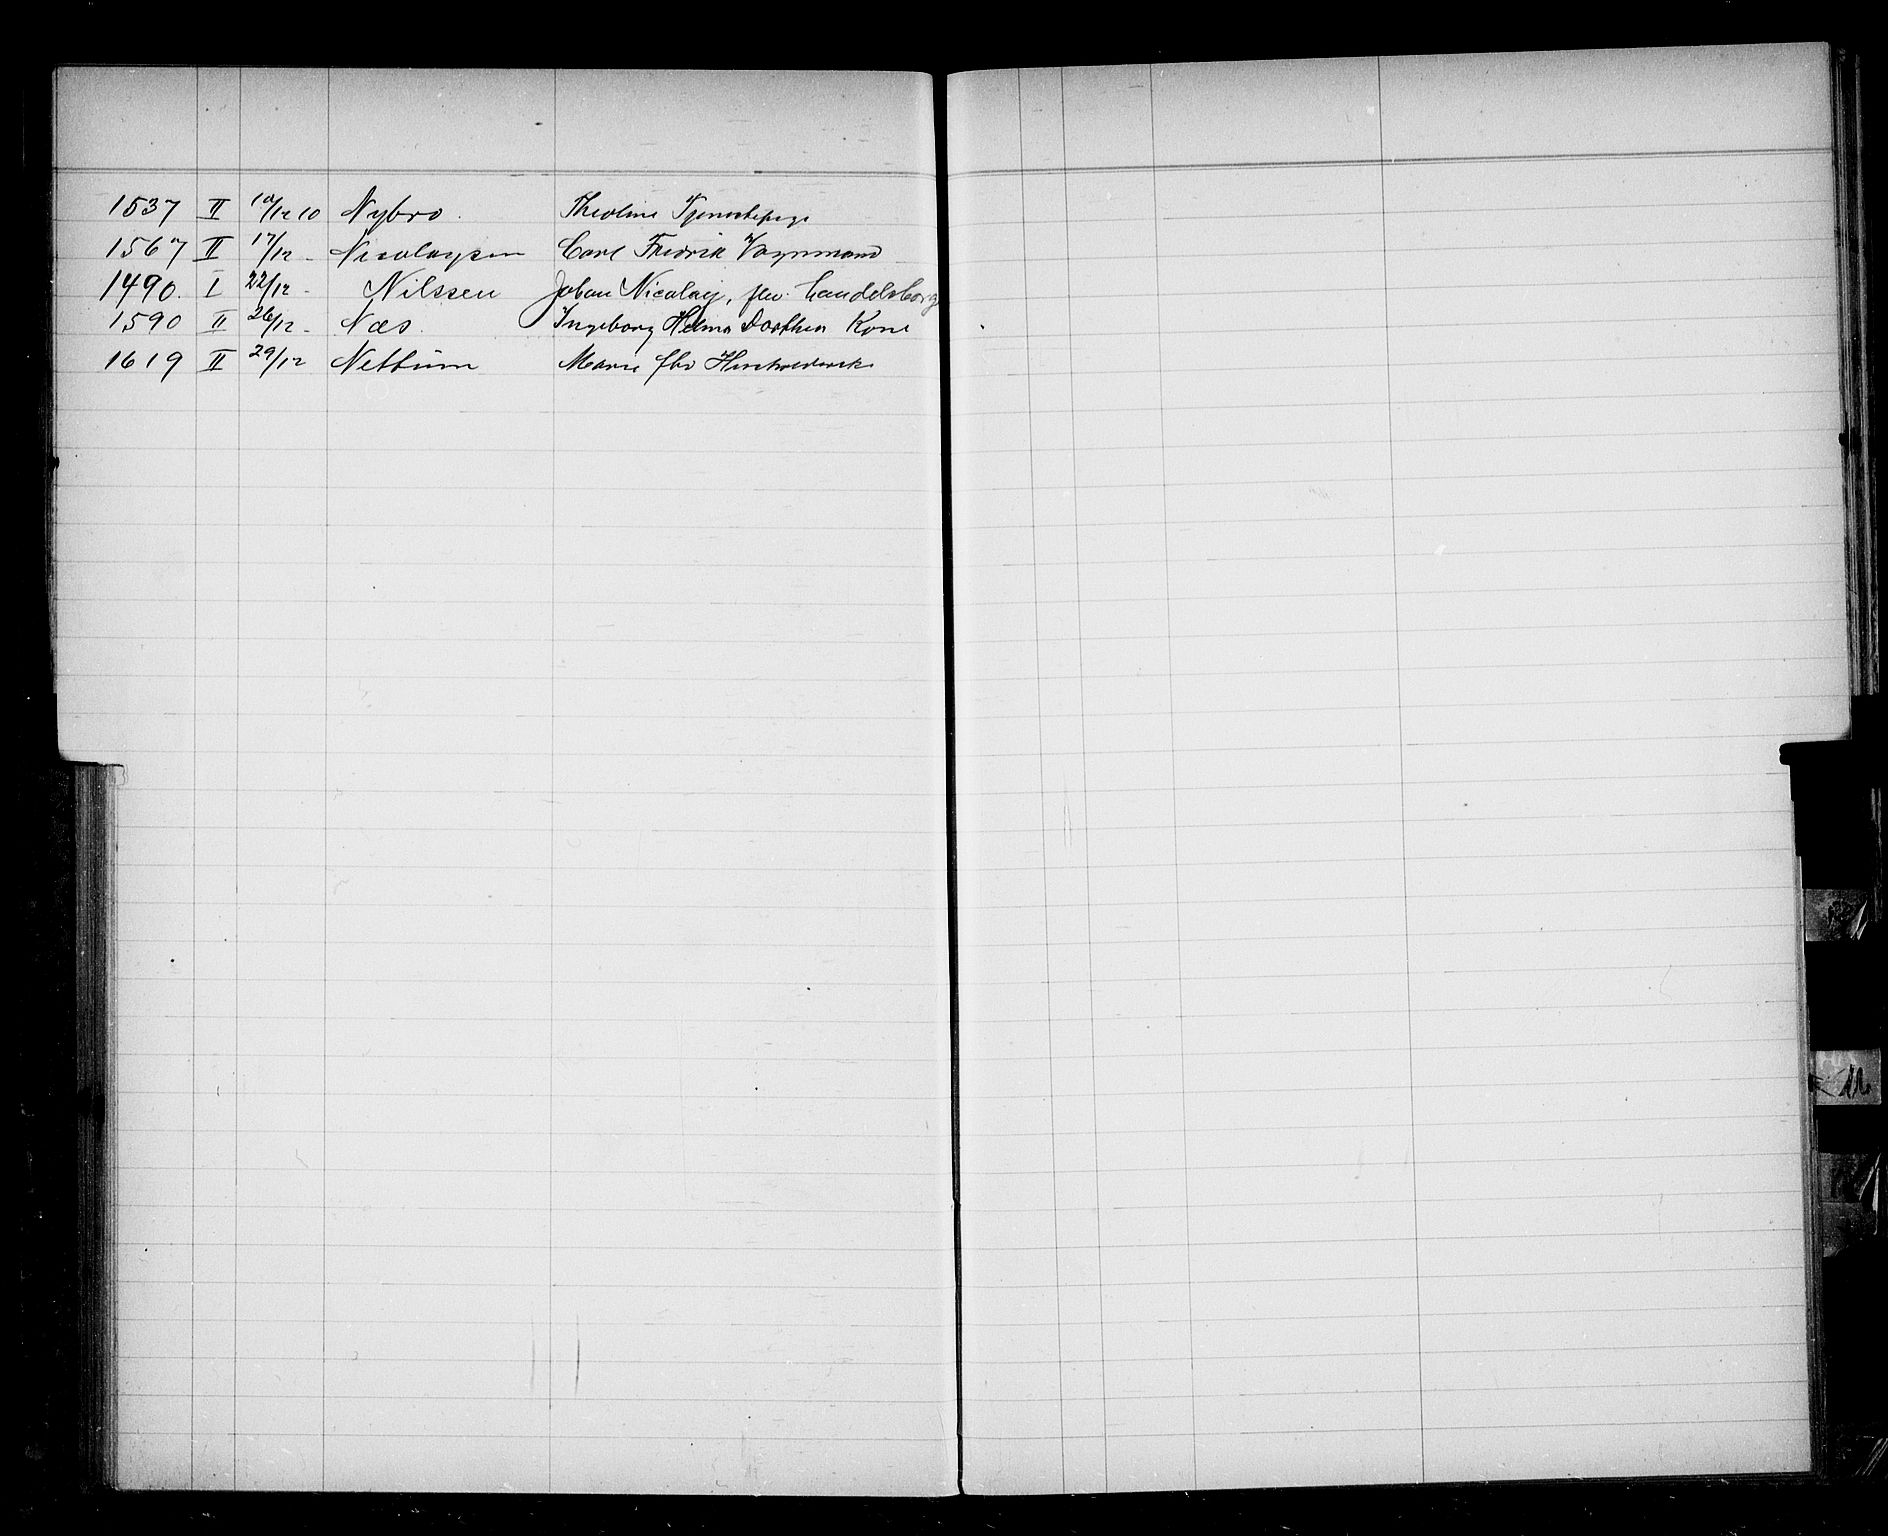 1537 II 10/12 10 Nybro. Theoline Tjenestepige
1567 II 17/12 - Nicolaysen Carl Fredrik Vognmand
1490. I 22/12 - Nilssen Johan Nicolay, flv. handelsborg
1590 II 26/12 - Næs. Ingeborg Helma Dorthea Kone
1619 II 29/12 Nettum Marie fhv